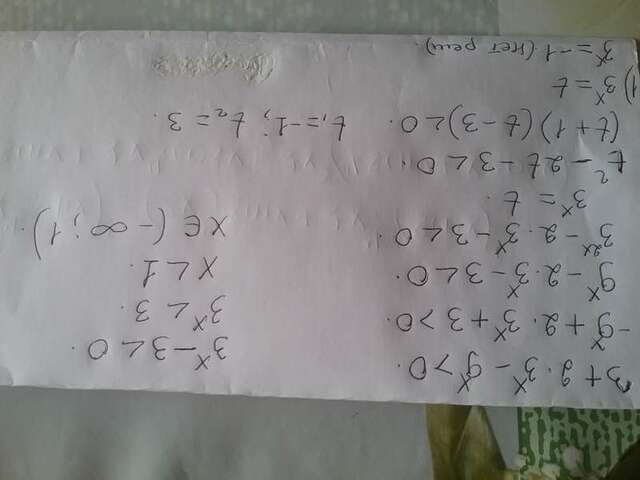 3 + 2 · 3^x - 9^x > 0.
-9^x + 2 · 3^x + 3 > 0.
9^x - 2 · 3^x - 3 < 0.
3^2x - 2 · 3^x - 3 < 0.
3^x = t.
t^2 - 2t - 3 < 0.
(t + 1)(t - 3) < 0. t₁ = -1; t₂ = 3.
1) 3^x = t
3^x = -1 (нет реш).
3^x - 3 < 0.
3^x < 3.
x < 1.
x ∈ (-∞; 1).